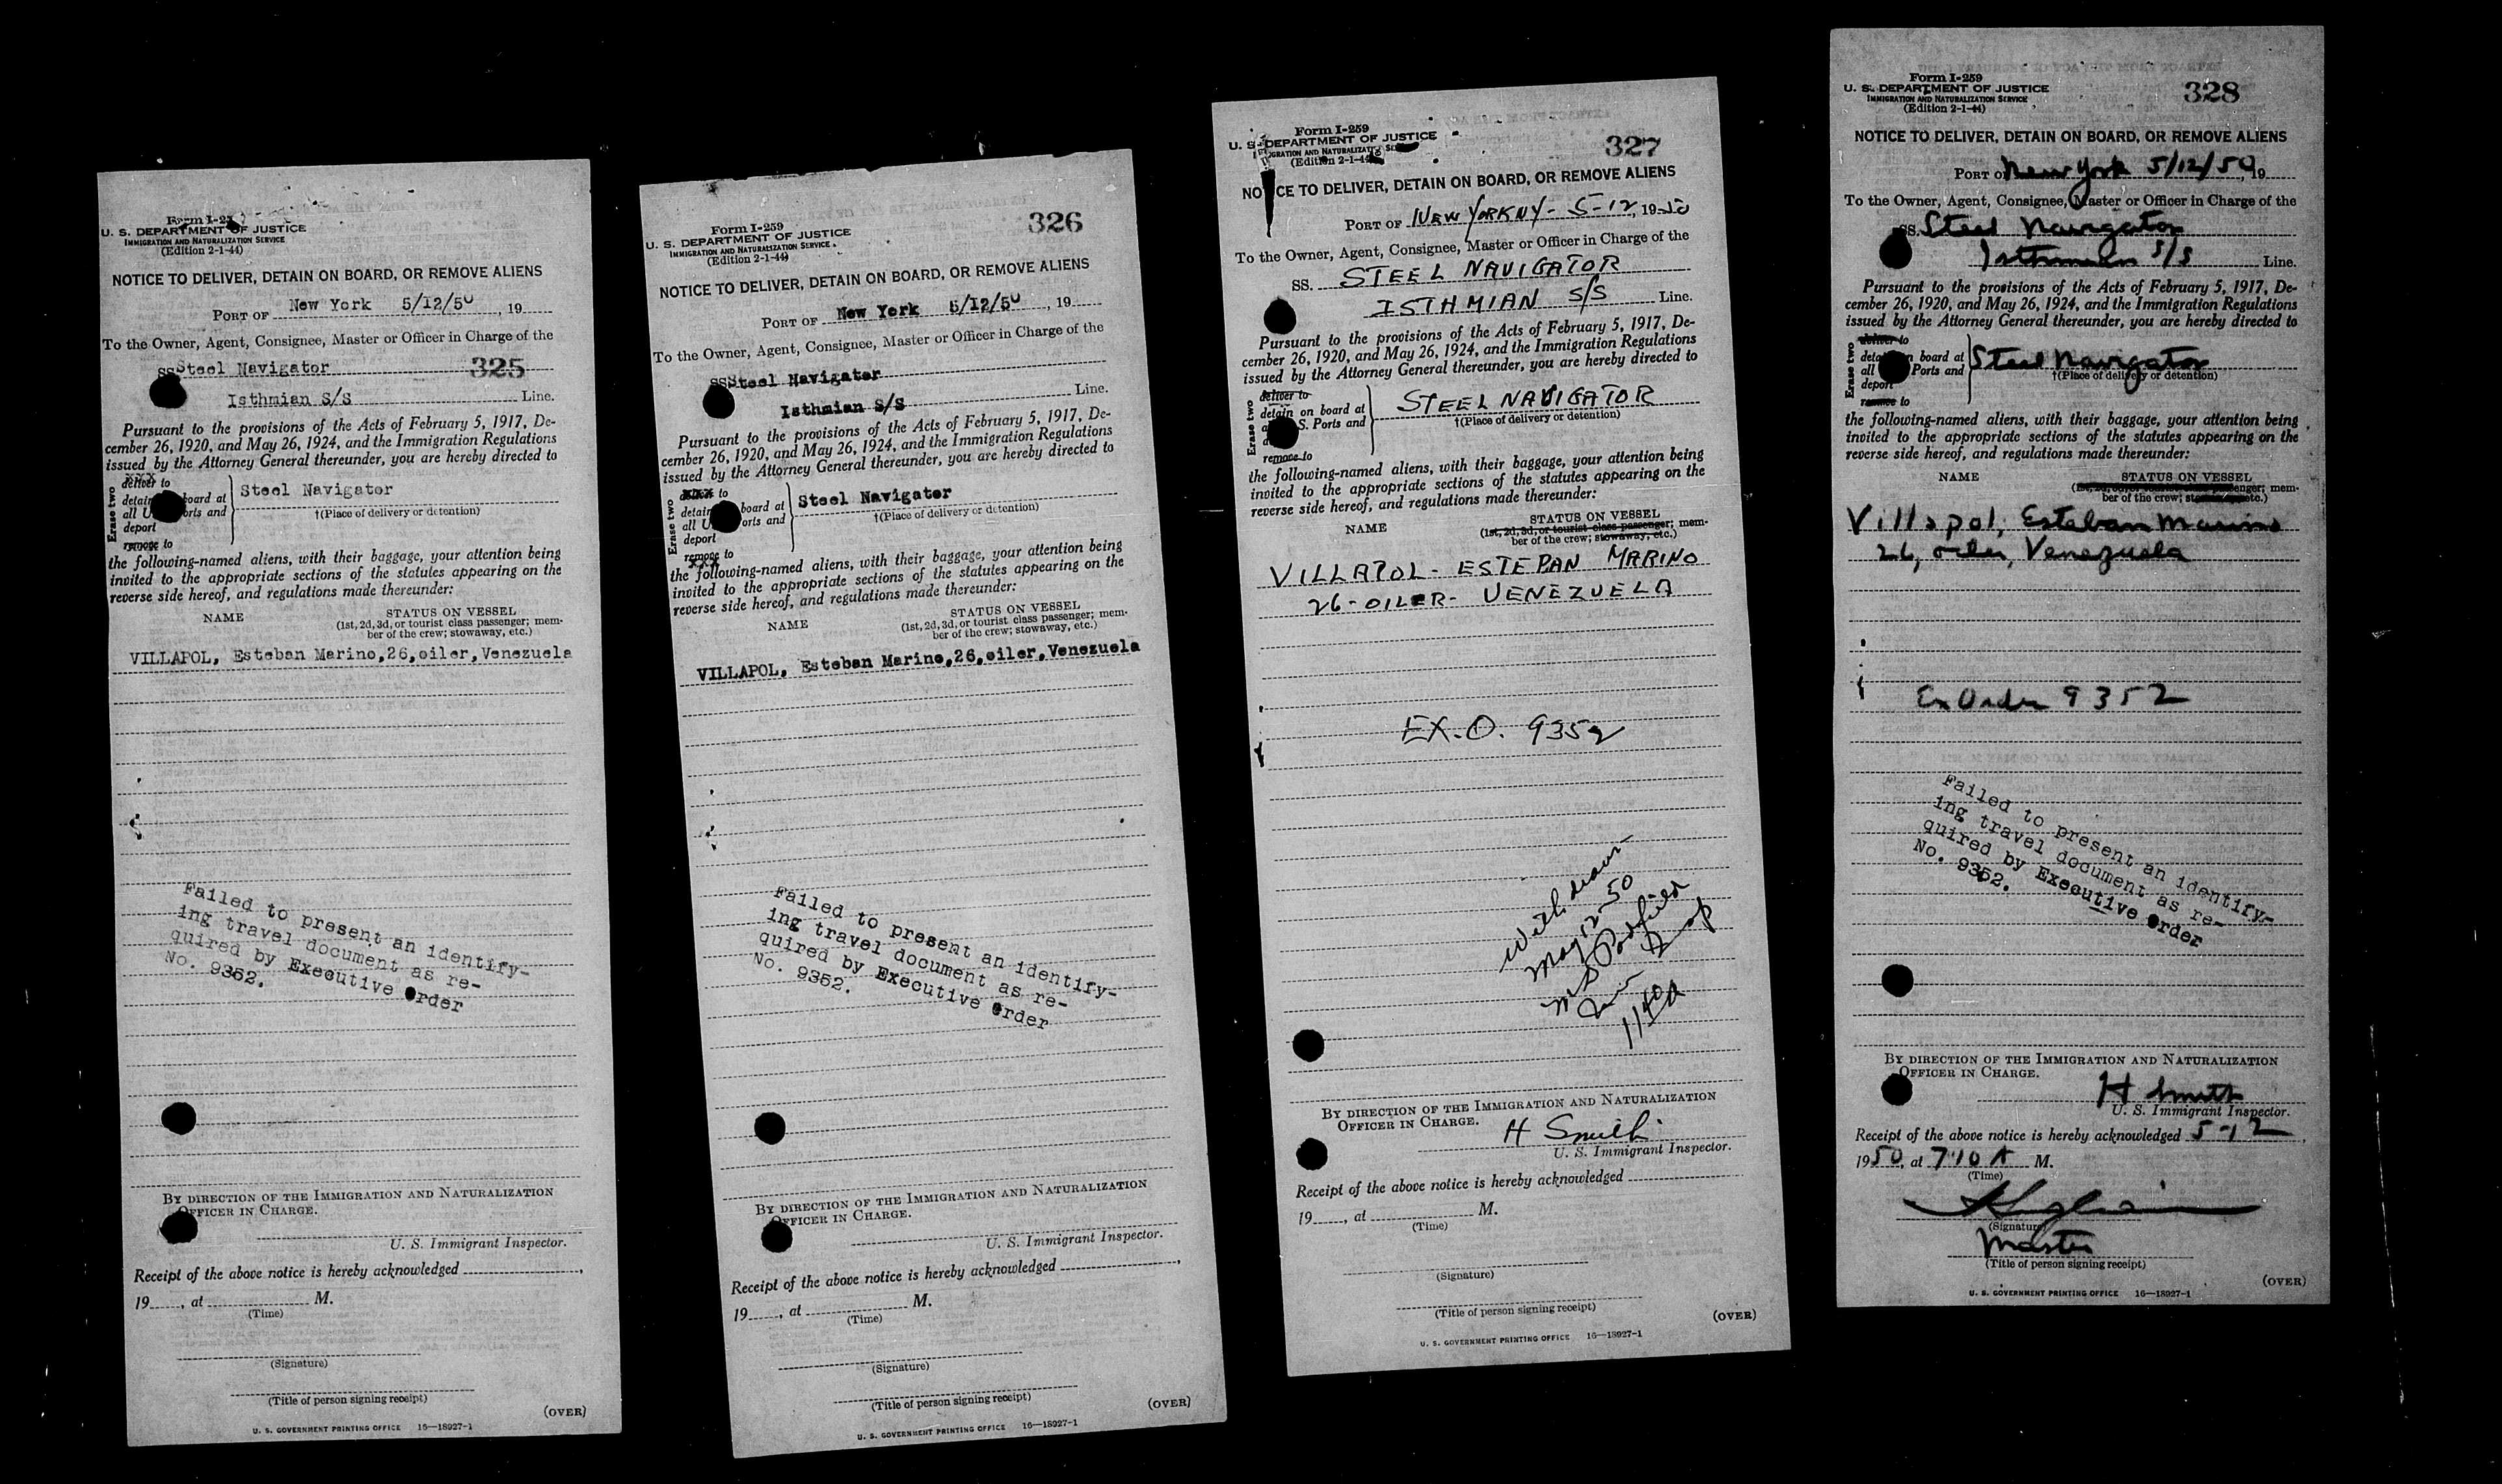 Form I-25
U. S. DEPARTMENT OF JUSTICE
IMMIGRATION AND NATURALIZATION SERVICE
(Edition 2-1-44)
NOTICE TO DELIVER, DETAIN ON BOARD, OR REMOVE ALIENS
PORT OF New York 5/12/50, 19
To the Owner, Agent, Consignee, Master or Officer in Charge of the
SS Steel Navigator 325
Isthmian S/S Line.
Pursuant to the provisions of the Acts of February 5, 1917, De-
cember 26, 1920, and May 26, 1924, and the Immigration Regulations
issued by the Attorney General thereunder, you are hereby directed to
Erase two
deliver to
detain board at
all U orts and
deport
remove to
Steel Navigator
†(Place of delivery or detention)
the following-named aliens, with their baggage, your attention being
invited to the appropriate sections of the statutes appearing on the
reverse side hereof, and regulations made thereunder:
NAME STATUS ON VESSEL
(1st, 2d, 3d, or tourist class passenger; mem-
ber of the crew; stowaway, etc.)
VILLAPOL, Esteban Marino,26,oiler,Venezuela
Failed to present an identify-
ing travel document as re-
quired by Executive Order
No. 9352.
BY DIRECTION OF THE IMMIGRATION AND NATURALIZATION
OFFICER IN CHARGE.
U. S. Immigrant Inspector.
Receipt of the above notice is hereby acknowledged ,
19 , at M.
(Time)
(Signature)
(Title of person signing receipt)
(OVER)
U. S. GOVERNMENT PRINTING OFFICE 16—18927-1
326
Form I-259
U. S. DEPARTMENT OF JUSTICE
IMMIGRATION AND NATURALIZATION SERVICE
(Edition 2-1-44)
NOTICE TO DELIVER, DETAIN ON BOARD, OR REMOVE ALIENS
PORT OF New York 5/12/50, 19
To the Owner, Agent, Consignee, Master or Officer in Charge of the
SS Steel Navigator
Isthmian S/S Line.
Pursuant to the provisions of the Acts of February 5, 1917, De-
cember 26, 1920, and May 26, 1924, and the Immigration Regulations
issued by the Attorney General thereunder, you are hereby directed to
Erase two
to
detain board at
all U orts and
deport
remove to
XXX
Steel Navigator
†(Place of delivery or detention)
the following-named aliens, with their baggage, your attention being
invited to the appropriate sections of the statutes appearing on the
reverse side hereof, and regulations made thereunder:
NAME STATUS ON VESSEL
(1st, 2d, 3d, or tourist class passenger; mem-
ber of the crew; stowaway, etc.)
VILLAPOL, Esteban Marino,26,oiler,Venezuela
Failed to present an identify-
ing travel document as re-
quired by Executive Order
No. 9352.
BY DIRECTION OF THE IMMIGRATION AND NATURALIZATION
OFFICER IN CHARGE.
U. S. Immigrant Inspector.
Receipt of the above notice is hereby acknowledged ,
19 , at M.
(Time)
(Signature)
(Title of person signing receipt)
(OVER)
U. S. GOVERNMENT PRINTING OFFICE 16—18927-1
Form I-259
U. S. DEPARTMENT OF JUSTICE
IMMIGRATION AND NATURALIZATION
(Edition 2-1-44)
327
NOTICE TO DELIVER, DETAIN ON BOARD, OR REMOVE ALIENS
PORT OF NEW YORK NY - 5-12, 1950
To the Owner, Agent, Consignee, Master or Officer in Charge of the
SS. STEEL NAVIGATOR
ISTHMIAN S/S Line.
Pursuant to the provisions of the Acts of February 5, 1917, De-
cember 26, 1920, and May 26, 1924, and the Immigration Regulations
issued by the Attorney General thereunder, you are hereby directed to
Erase two
deliver to
detain on board at
a S. Ports and
d
remove to
STEEL NAVIGATOR
†(Place of delivery or detention)
the following-named aliens, with their baggage, your attention being
invited to the appropriate sections of the statutes appearing on the
reverse side hereof, and regulations made thereunder:
NAME STATUS ON VESSEL
(1st, 2d, 3d, or tourist class passenger; mem-
ber of the crew; stowaway, etc.)
VILLAPOL - ESTEBAN MARINO
26 - OILER - VENEZUELA
EX. O. 9352
Withdrawn
May 12 - 50
BY DIRECTION OF THE IMMIGRATION AND NATURALIZATION
OFFICER IN CHARGE.
H Smith
U. S. Immigrant Inspector.
Receipt of the above notice is hereby acknowledged
19 , at M.
(Time)
(Signature)
(Title of person signing receipt)
(OVER)
U. S. GOVERNMENT PRINTING OFFICE 16—18927-1
Form I-259
U. S. DEPARTMENT OF JUSTICE
IMMIGRATION AND NATURALIZATION SERVICE
(Edition 2-1-44)
328
NOTICE TO DELIVER, DETAIN ON BOARD, OR REMOVE ALIENS
PORT OF New York 5/12/50, 19
To the Owner, Agent, Consignee, Master or Officer in Charge of the
SS. Steel Navigator
Isthmian S/S Line.
Pursuant to the provisions of the Acts of February 5, 1917, De-
cember 26, 1920, and May 26, 1924, and the Immigration Regulations
issued by the Attorney General thereunder, you are hereby directed to
Erase two
deliver to
detain n board at
all Ports and
deport
remove to
Steel Navigator
†(Place of delivery or detention)
the following-named aliens, with their baggage, your attention being
invited to the appropriate sections of the statutes appearing on the
reverse side hereof, and regulations made thereunder:
NAME STATUS ON VESSEL
passenger; mem-
ber of the crew; etc.)
Villapol, Esteban Marino
26, oiler, Venezuela
Ex Order 9352
Failed to present an identify-
ing travel document as re-
quired by Executive Order
No. 9352.
BY DIRECTION OF THE IMMIGRATION AND NATURALIZATION
OFFICER IN CHARGE.
H Smith
U. S. Immigrant Inspector.
Receipt of the above notice is hereby acknowledged 5-12
1950, at 710 A M.
(Time)
(Signature)
Master
(Title of person signing receipt)
(OVER)
U. S. GOVERNMENT PRINTING OFFICE 16—18927-1